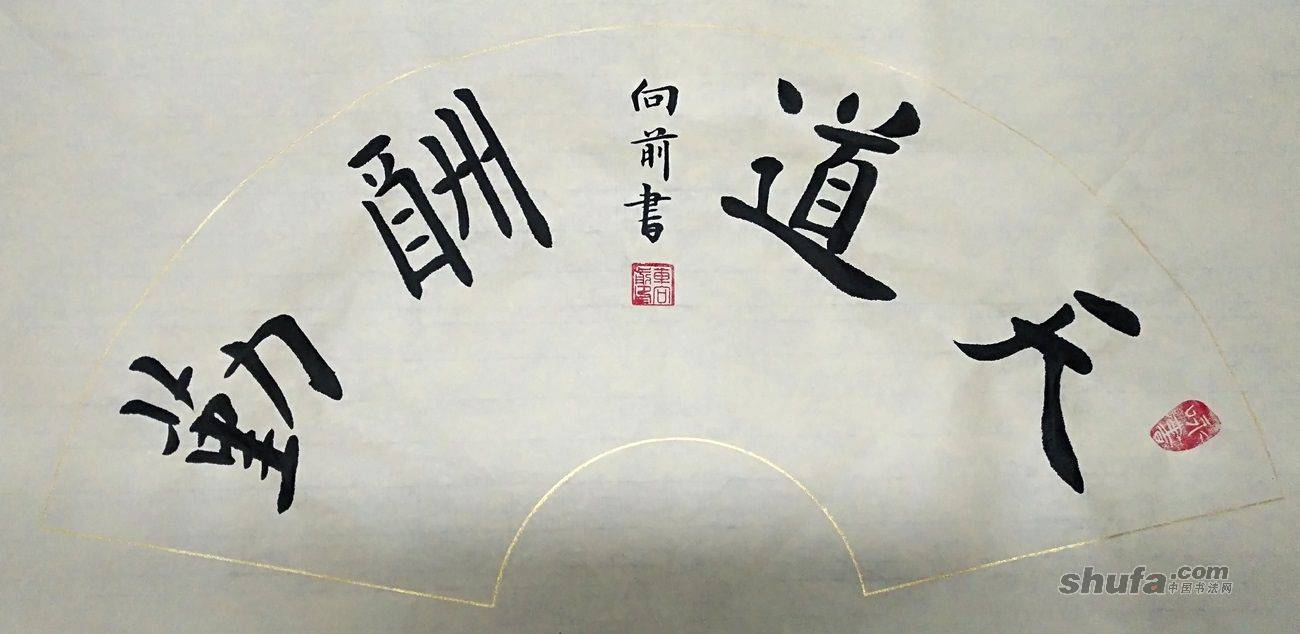 天道酬勤
向前書
shufa.com
中国书法网